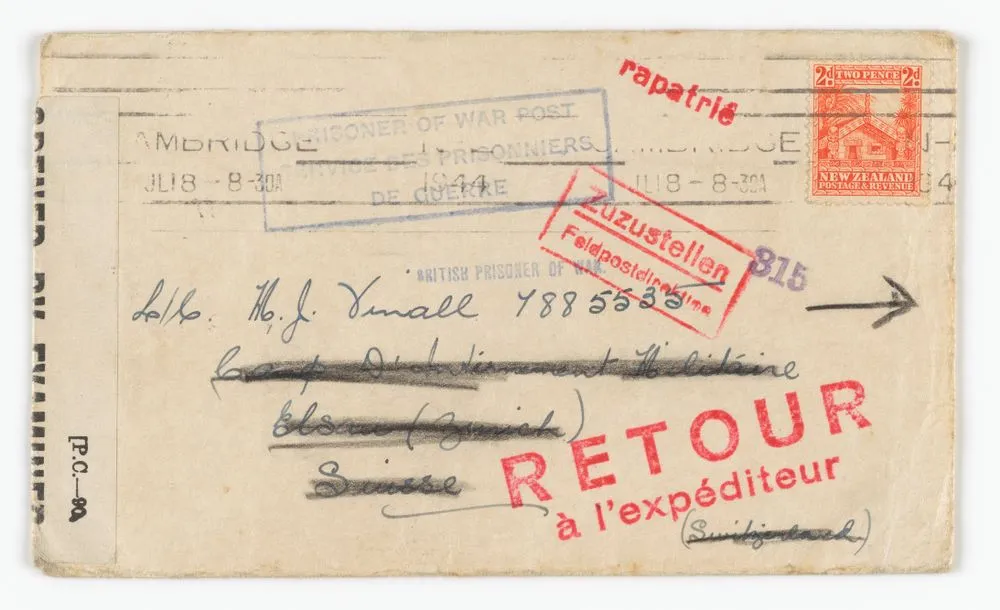 rapatrié
2d TWO PENCE 2d
NEW ZEALAND
POSTAGE & REVENUE
PRISONER OF WAR POST
SERVICE DES PRISONNIERS
DE GUERRE
AMBRIDGE
CAMBRIDGE
JL18 - 8-30A
1944
JL18 - 8-30A
Zuzustellen
Feldpostdirektion
815
BRITISH PRISONER OF WAR.
L/C. H. J. Vinall 7885535
Camp D'Internement Militaire
Elsau (Zurich)
Suisse
RETOUR
à l'expéditeur
(Switzerland)
OPENED BY EXAMINER
P.C.—90